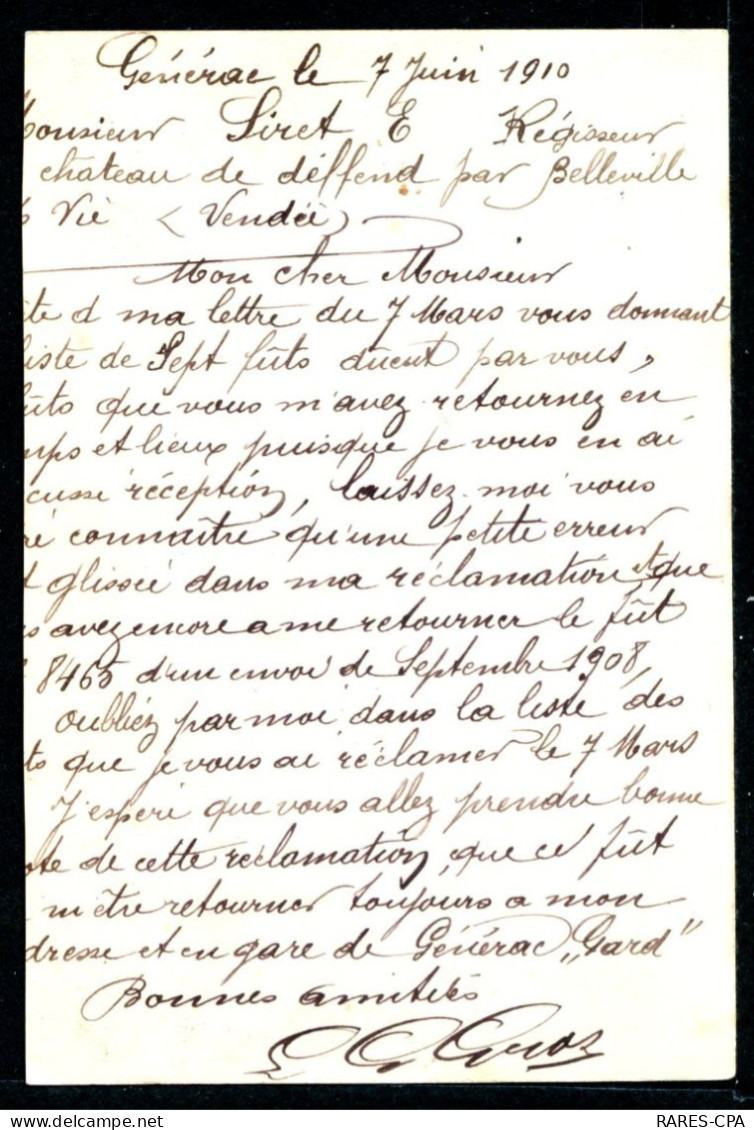 Générac le 7 Juin 1910
onsieur Siret E Régisseur
chateau de déffend par Belleville
Vie (Vendée)
Mon cher Monsieur
te d ma lettre du 7 Mars vous donnant
liste de Sept fûts ducent par vous,
ûts que vous m'avez retournez en
mps et lieux puisque je vous en ai
cusse réception, laissez moi vous
ré connaître qu'une petite erreur
t glissée dans ma réclamation, que
s avez encore a me retourner le fût
8465 d'un envoi de Septembre 1908,
oubliéz par moi dans la liste des
ts que je vous ai réclamer le 7 Mars
J'esperé que vous allez prendre bonne
ote de cette réclamation, que ce fût
m'être retourner toujours a mon
dresse et en gare de Générac „Gard"
Bonnes amitiés
RARES-CPA